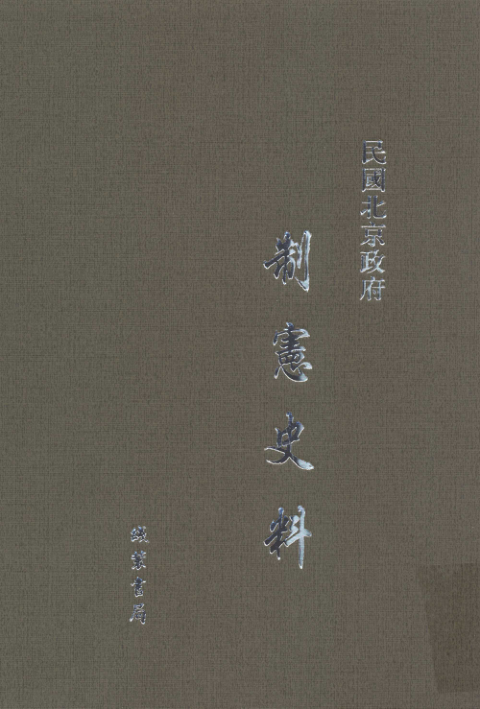 民國北京政府
制憲史料
线装書局